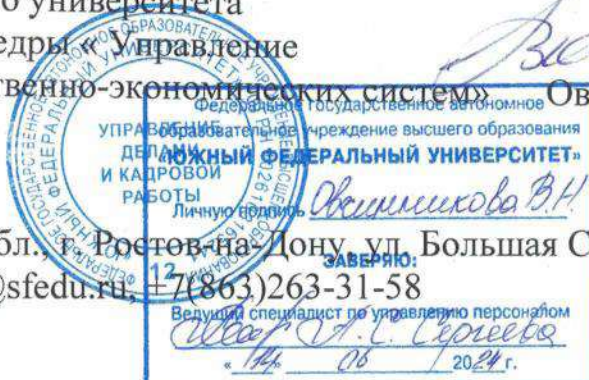 о университета
едры « Управление
твенно-экономических систем» Ов
Федеральное государственное автономное
образовательное учреждение высшего образования
«ЮЖНЫЙ ФЕДЕРАЛЬНЫЙ УНИВЕРСИТЕТ»
УПРАВЛЕНИЕ
ДЕЛАМИ
И КАДРОВОЙ
РАБОТЫ
Личную подпись Овчинникова В.Н.
бл., г. Ростов-на-Дону, ул. Большая С
ЗАВЕРЯЮ:
12
@sfedu.ru, +7(863)263-31-58
Ведущий специалист по управлению персоналом
А.С. Сергеева
« 14 » 06 2024 г.